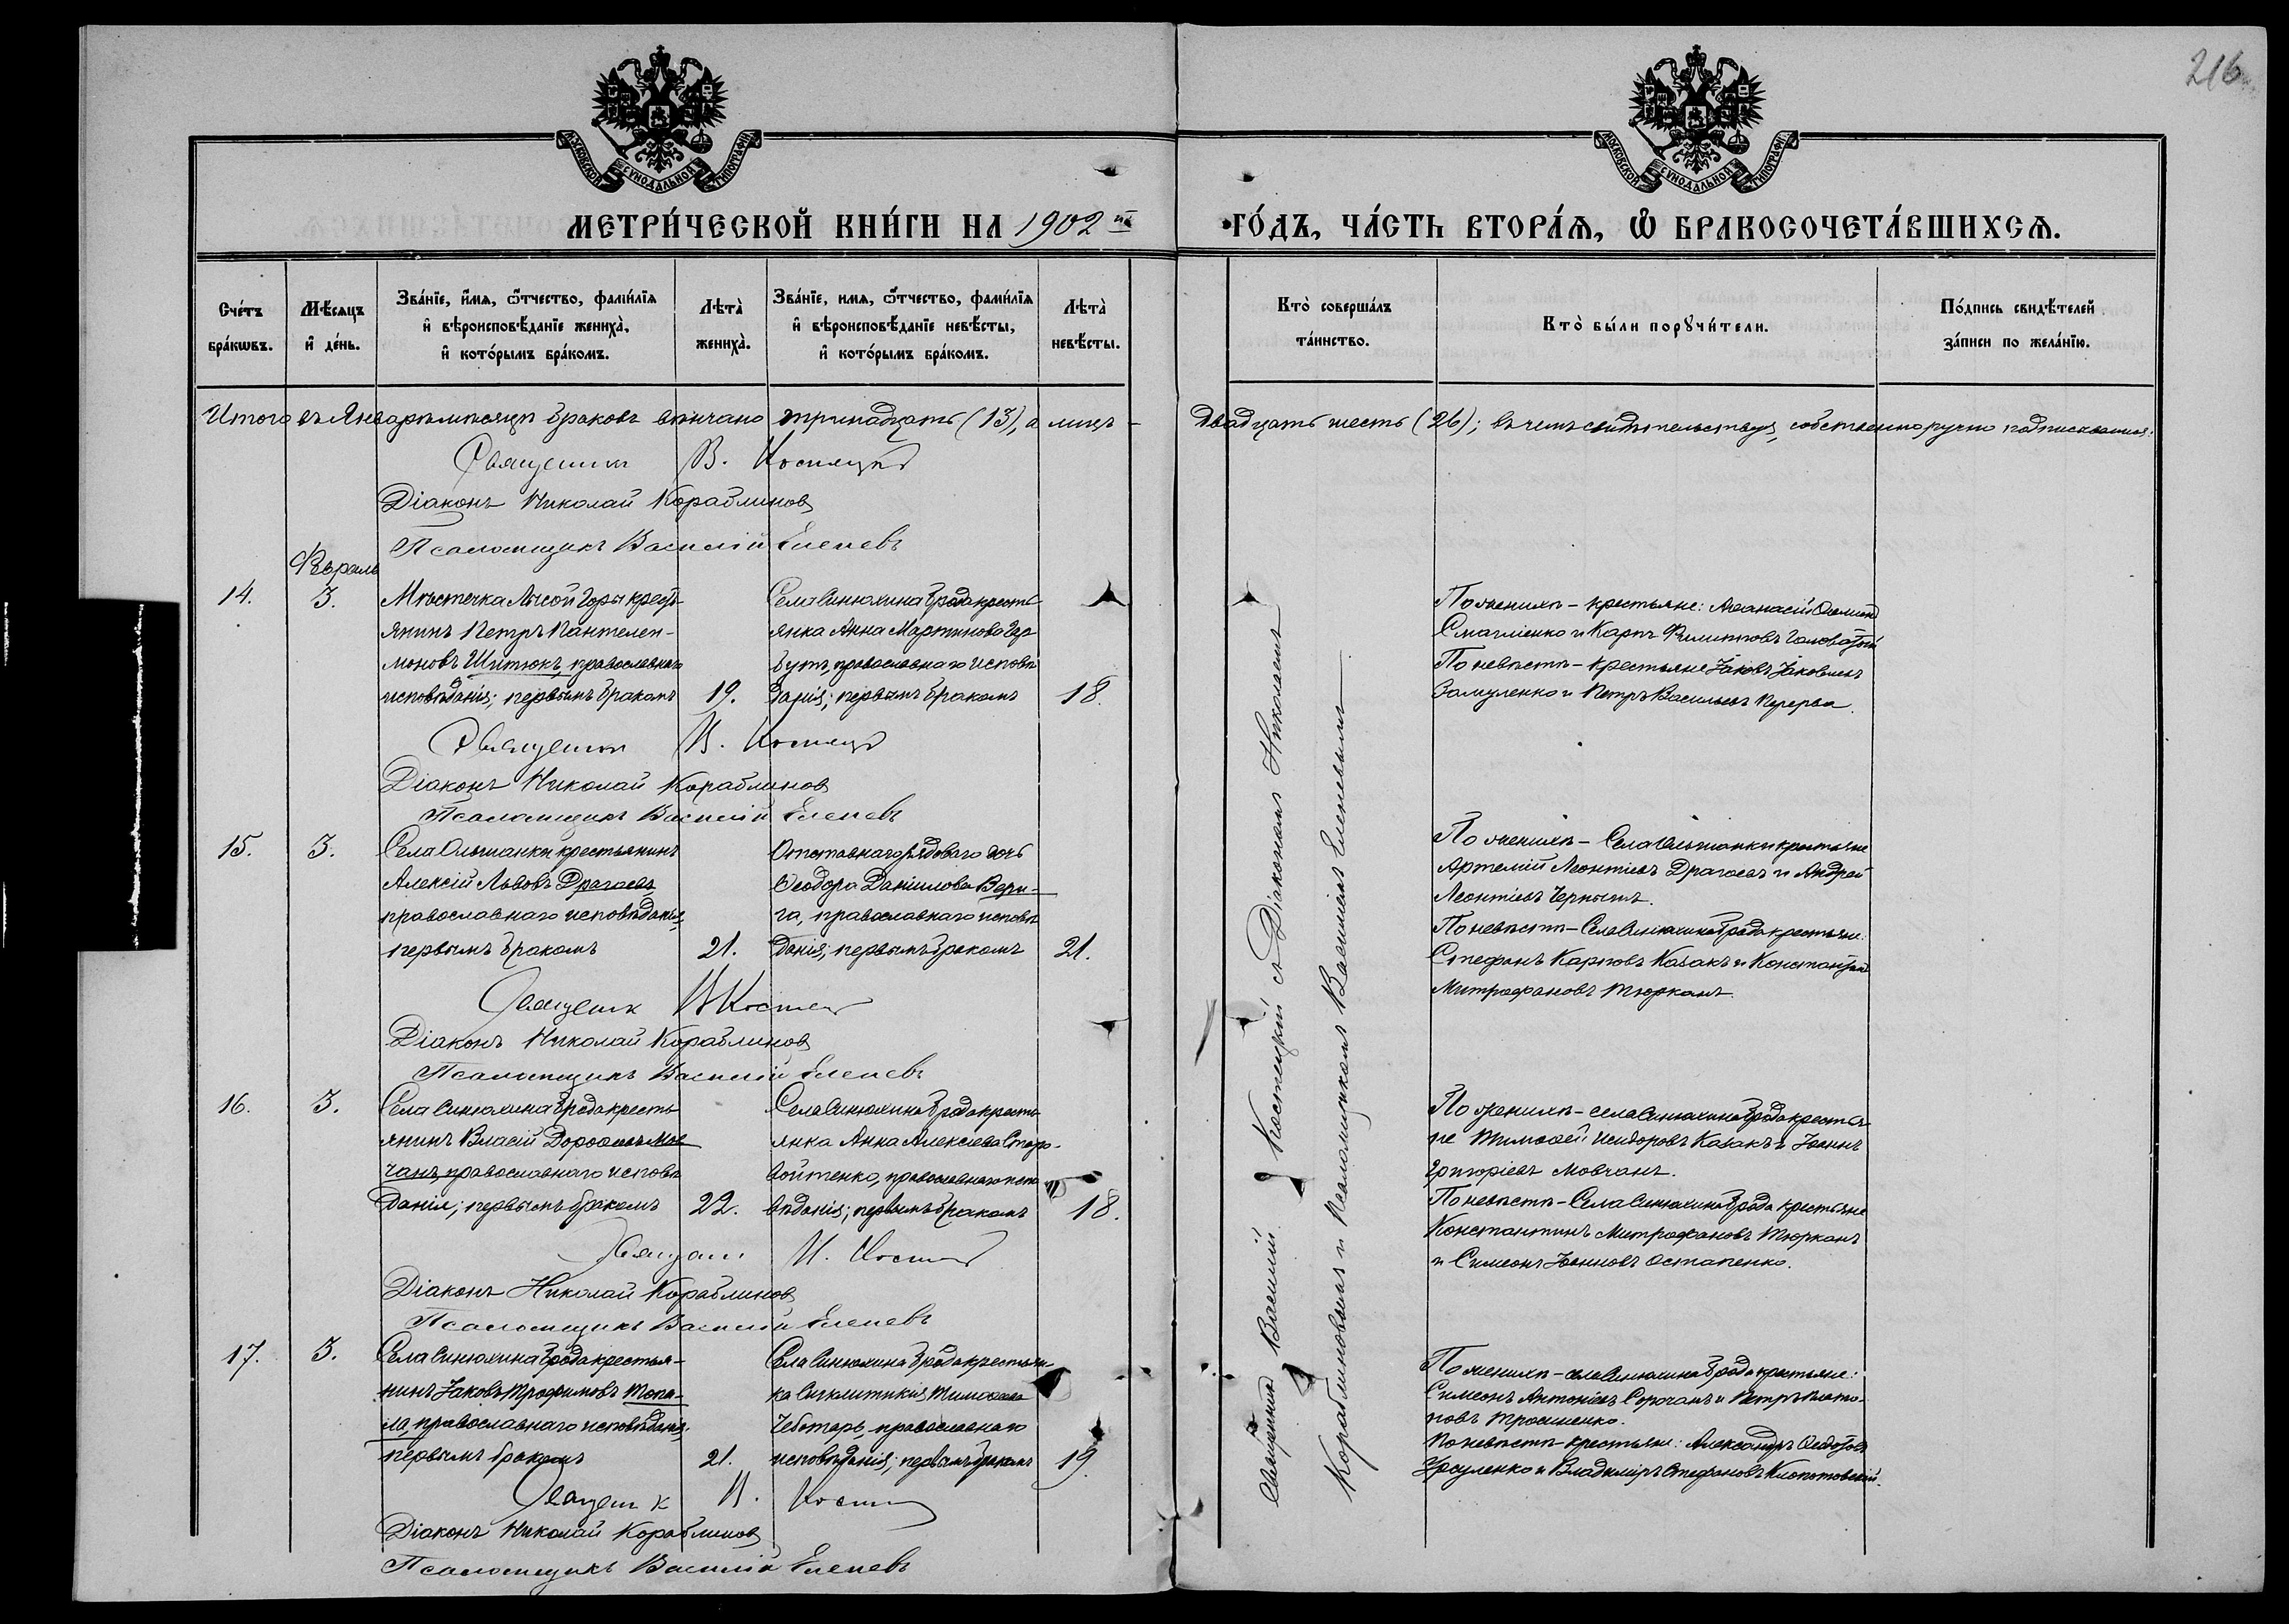 216
МОСКОВСКОЙ СѴНОДАЛЬНОЙ ТИПОГРАФІИ
МОСКОВСКОЙ СѴНОДАЛЬНОЙ ТИПОГРАФІИ
МЕТРИ́ЧЕСКОЙ КНИ́ГИ НА 1902й ГО́ДЪ, ЧА́СТЬ ВТОРА́Ѧ, Ѽ БРАКОСОЧЕТА́ВШИХСѦ.
Сче́тъ бра́кѡвъ.
Мѣ́сѧцъ и҆ де́нь.
Зва́нїе, и҆́мѧ, ѻ҆́тчество, фамі́лїѧ
и҆ вѣроисповѣ́данїе жениха̀,
и҆ кото́рымъ бра́комъ.
Лѣ́та̀ жениха̀.
Зва́нїе, имѧ, ѻ҆́тчество, фами́лїѧ
и҆ вѣроисповѣ́данїе невѣ́сты,
и҆ кото́рымъ бра́комъ.
Лѣ́та̀ невѣ́сты.
Кто̀ соверша́лъ та́инство.
Кто̀ бы́ли порꙋчи́тели.
По́дпись свидѣ́телей за́писи по жела́нїю.
Итого въ Январѣ мѣсяцѣ браковъ вѣнчано тринадцать (13), а лицъ - двадцать шесть (26); въ чемъ свидѣтельствуя, собственноручно подписываемся:
Священникъ В. Костецкій
Діаконъ Николай Кораблиновъ
Псаломщикъ Василій Елепевъ
Февраль
14.
3.
Мѣстечка Лысой Горы кресть-
янинъ Петръ Пантелей-
моновъ Шитюкъ, православнаго
исповѣданія; первымъ бракомъ
19.
Села Синюхина Брода кресть-
янка Анна Мартинова Гер
бутъ, православнаго исповѣ
данія; первымъ бракомъ
18.
По женихѣ - крестьяне: Аѳанасій
Смагліенко и Карпъ Филипповъ Головатый
По невѣстѣ - крестьяне Іаковъ Іаковлевъ
Замуленко и Петръ Васильевъ Перерва.
Священникъ В. Костецкій
Діаконъ Николай Кораблиновъ
Псаломщикъ Василій Елепевъ
15.
3.
Села Ольшанки крестьянинъ
Алексій Львовъ Драгаевъ
православнаго исповѣданія,
первымъ бракомъ
21.
Отставнаго рядового дочь
Ѳеодора Даніилова Вери-
га, православнаго исповѣ
данія; первымъ бракомъ
21.
По женихѣ - Села Ольшанки крестьяне
Артемій Леонтіевъ Драгаевъ и Андрей
Леонтіевъ Чернышъ.
По невѣстѣ - Села Синюхина Брода крестьяне:
Стефанъ Карповъ Казакъ и Константинъ
Митрофановъ Тюрканъ.
Священникъ В Костец
Діаконъ Николай Кораблиновъ
Псаломщикъ Василій Елепевъ
16.
3.
Села Синюхина Брода кресть
янинъ Власій Дорофеевъ Мов
чанъ, православнаго исповѣ
данія; первымъ бракомъ
22.
Села Синюхина Брода кресть
янка Анна Алексіева Старо-
войтенко, православнаго испо
вѣданія; первымъ бракомъ
18.
По женихѣ - села Синюхина Брода крестья-
не Тимоѳей Исидоровъ Казакъ и Іоаннъ
Григоріевъ Мовчанъ.
По невѣстѣ - Села Синюхина Брода крестьяне
Константинъ Митрофановъ Тюрканъ
и Симеонъ Іоанновъ Остапенко.
Діаконъ Николай Кораблиновъ
Псаломщикъ Василій Елепевъ
17.
3.
Села Синюхина Брода крестья-
нинъ Іаковъ Трофимовъ Топа-
ла, православнаго исповѣданія;
первымъ бракомъ
21.
Села Синюхина Брода крестьян
ка Синклитикія Тимоѳеева
Чеботарь, православнаго
исповѣданія; первымъ бракомъ
19.
По женихѣ - села Синюхина Брода крестьяне:
Симеонъ Антоніевъ Сорочанъ и Петръ Плато-
новъ Трошенко.
По невѣстѣ - крестьяне: Александръ Ѳедотовъ
Урсуленко и Владиміръ Стефановъ Клопотовскій.
Діаконъ Николай Кораблиновъ
Псаломщикъ Василій Елепевъ
Священникъ Василій Костецкій съ Діакономъ Николаемъ
Кораблиновымъ и Псаломщикомъ Василіемъ Елепевымъ